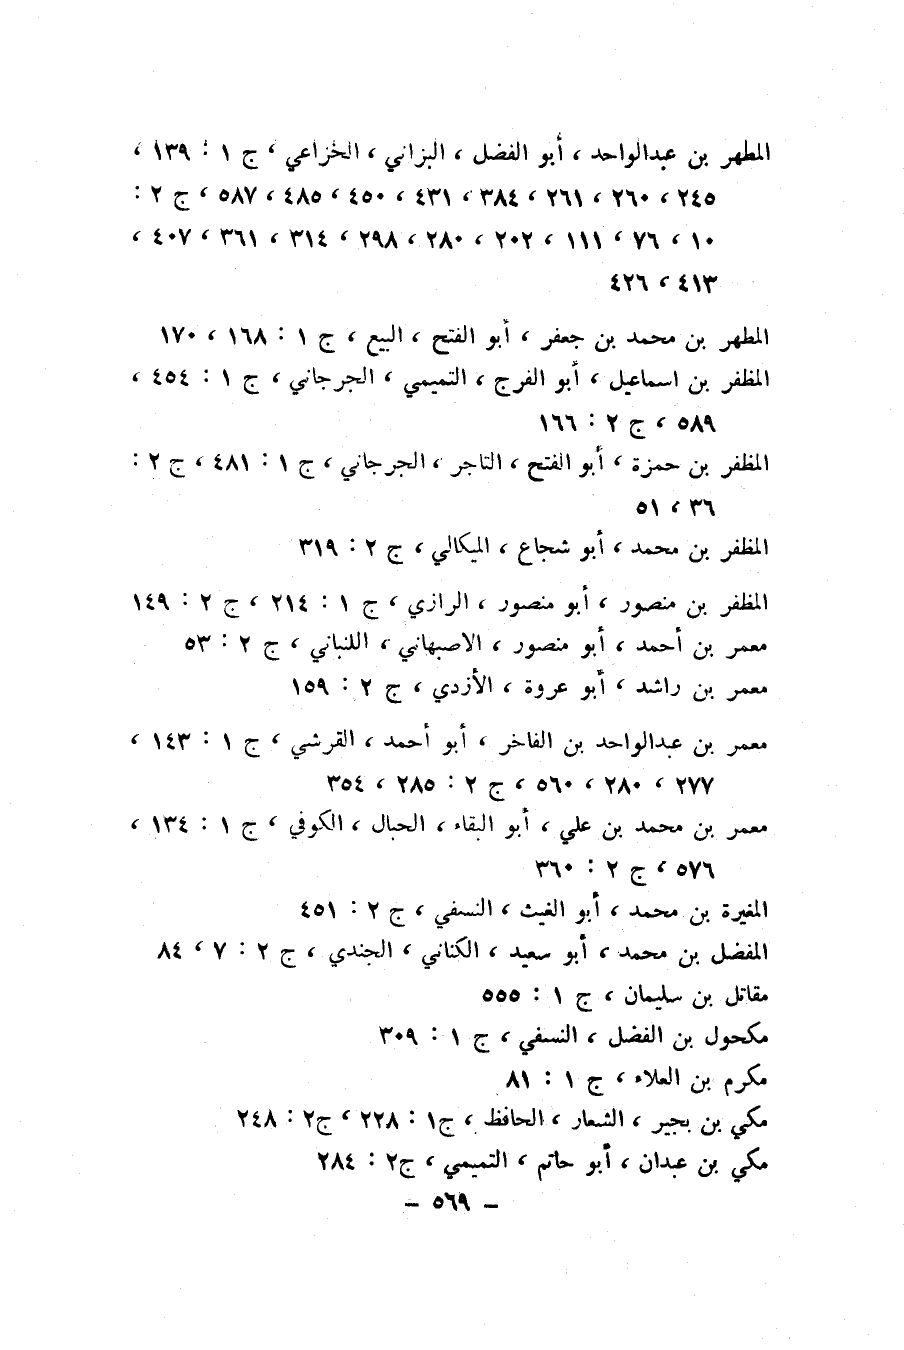 المطهر بن عبدالواحد ، أبو الفضل ، البزاني ، الخزاعي ، ج ١ : ١٣٩ ،
٢٤٥ ، ٢٦٠ ، ٢٦١ ، ٣٨٤ ، ٤٣١ ، ٤٥٠ ، ٤٨٥ ، ٥٨٧ ، ج ٢ :
١٠ ، ٧٦ ، ١١١ ، ٢٠٢ ، ٢٨٠ ، ٢٩٨ ، ٣١٤ ، ٣٦١ ، ٤٠٧ ،
٤١٣ ، ٤٢٦
المطهر بن محمد بن جعفر ، أبو الفتح ، البيع ، ج ١ : ١٦٨ ، ١٧٠
المظفر بن اسماعيل ، أبو الفرج ، التميمي ، الجرجاني ، ج ١ : ٤٥٤ ،
٥٨٩ ، ج ٢ : ١٦٦
المظفر بن حمزة ، أبو الفتح ، التاجر ، الجرجاني ، ج ١ : ٤٨١ ، ج ٢ :
٣٦ ، ٥١
المظفر بن محمد ، أبو شجاع ، الميكالي ، ج ٢ : ٣١٩
المظفر بن منصور ، أبو منصور ، الرازي ، ج ١ : ٢١٤ ، ج ٢ : ١٤٩
معمر بن أحمد ، أبو منصور ، الاصبهاني ، اللنباني ، ج ٢ : ٥٣
معمر بن راشد ، أبو عروة ، الأزدي ، ج ٢ : ١٥٩
معمر بن عبدالواحد بن الفاخر ، أبو أحمد ، القرشي ، ج ١ : ١٤٣ ،
٢٧٧ ، ٢٨٠ ، ٥٦٠ ، ج ٢ : ٢٨٥ ، ٣٥٤
معمر بن محمد بن علي ، أبو البقاء ، الحبال ، الكوفي ، ج ١ : ١٣٤ ،
٥٧٦ ، ج ٢ : ٣٦٠
المغيرة بن محمد ، أبو الغيث ، النسفي ، ج ٢ : ٤٥١
المفضل بن محمد ، أبو سعيد ، الكناني ، الجندي ، ج ٢ : ٧ ، ٨٤
مقاتل بن سليمان ، ج ١ : ٥٥٥
مكحول بن الفضل ، النسفي ، ج ١ : ٣٠٩
مكرم بن العلاء ، ج ١ : ٨١
مكي بن بجير ، الشعار ، الحافظ ، ج١ : ٢٢٨ ، ج٢ : ٢٤٨
مكي بن عبدان ، أبو حاتم ، التميمي ، ج٢ : ٢٨٤
– ٥٦٩ –